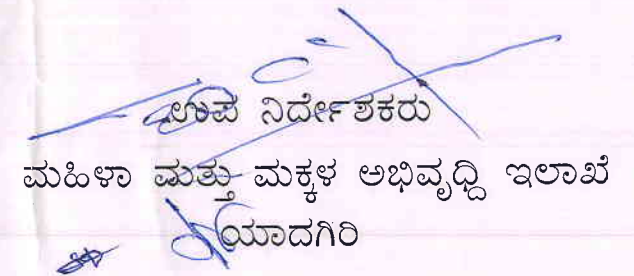 ಉಪ ನಿರ್ದೇಶಕರು
ಮಹಿಳಾ ಮತ್ತು ಮಕ್ಕಳ ಅಭಿವೃಧ್ದಿ ಇಲಾಖೆ
ಯಾದಗಿರಿ